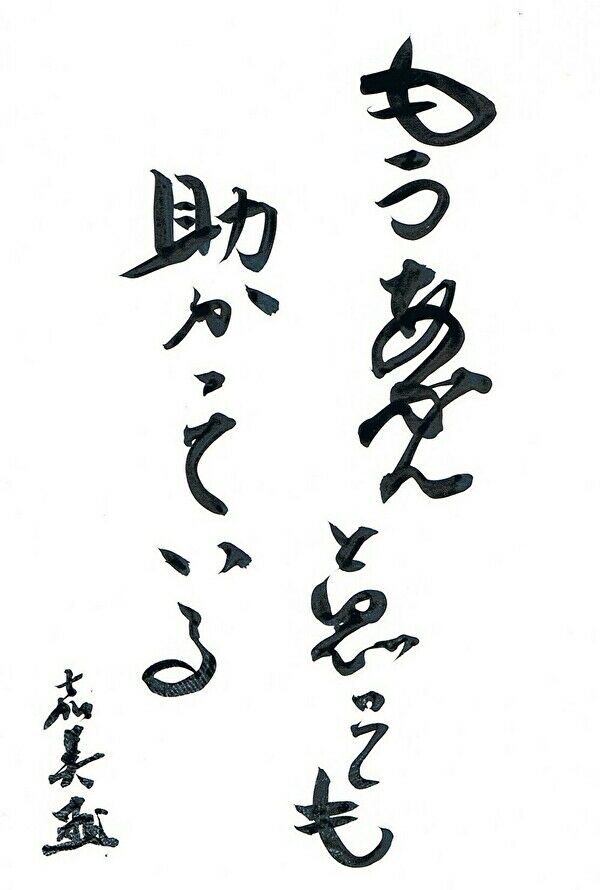 もうあかん
と思っても
助かっている
嘉美